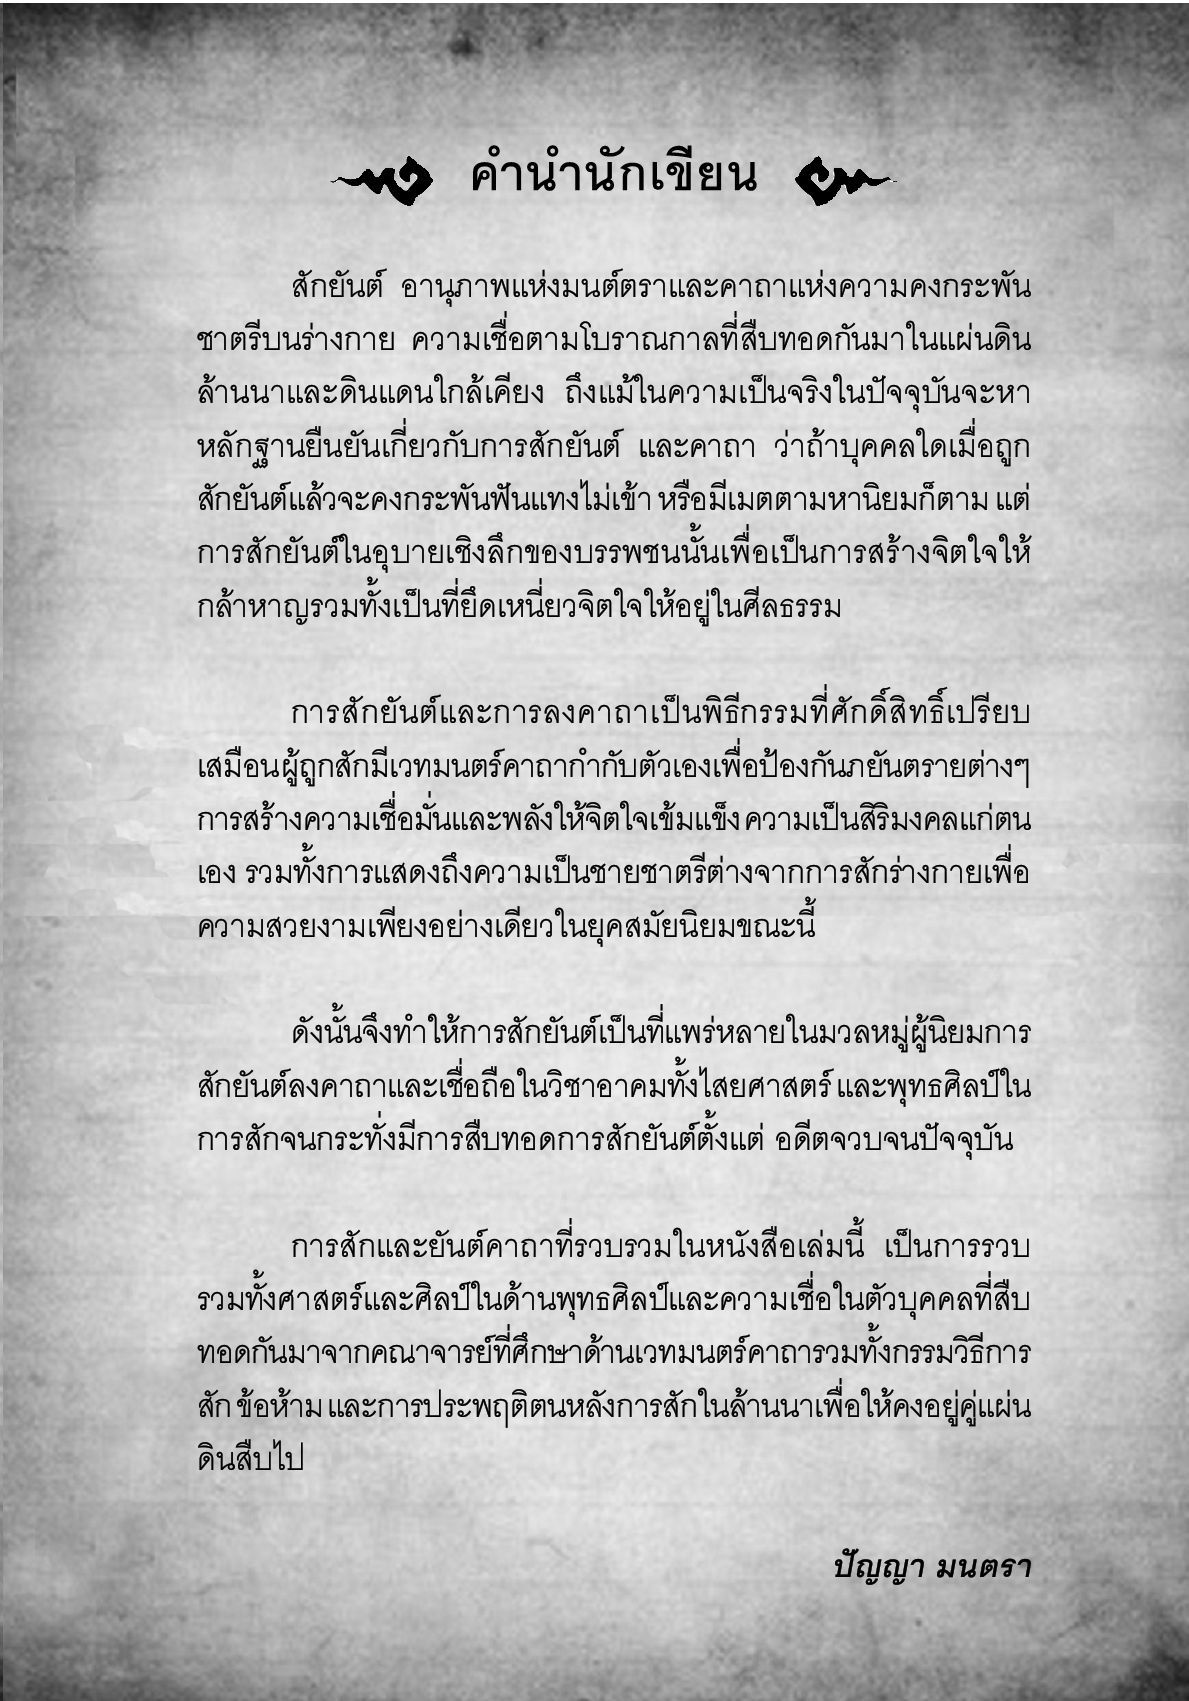 คำนำนักเขียน
สักยันต์ อานุภาพแห่งมนต์ตราและคาถาแห่งความคงกระพัน
ชาตรีบนร่างกาย ความเชื่อตามโบราณกาลที่สืบทอดกันมาในแผ่นดิน
ล้านนาและดินแดนใกล้เคียง ถึงแม้ในความเป็นจริงในปัจจุบันจะหา
หลักฐานยืนยันเกี่ยวกับการสักยันต์ และคาถา ว่าถ้าบุคคลใดเมื่อถูก
สักยันต์แล้วจะคงกระพันฟันแทงไม่เข้า หรือมีเมตตามหานิยมก็ตาม แต่
การสักยันต์ในอุบายเชิงลึกของบรรพชนนั้นเพื่อเป็นการสร้างจิตใจให้
กล้าหาญรวมทั้งเป็นที่ยึดเหนี่ยวจิตใจให้อยู่ในศีลธรรม
การสักยันต์และการลงคาถาเป็นพิธีกรรมที่ศักดิ์สิทธิ์เปรียบ
เสมือนผู้ถูกสักมีเวทมนตร์คาถากำกับตัวเองเพื่อป้องกันภยันตรายต่างๆ
การสร้างความเชื่อมั่นและพลังให้จิตใจเข้มแข็ง ความเป็นสิริมงคลแก่ตน
เอง รวมทั้งการแสดงถึงความเป็นชายชาตรีต่างจากการสักร่างกายเพื่อ
ความสวยงามเพียงอย่างเดียวในยุคสมัยนิยมขณะนี้
ดังนั้นจึงทำให้การสักยันต์เป็นที่แพร่หลายในมวลหมู่ผู้นิยมการ
สักยันต์ลงคาถาและเชื่อถือในวิชาอาคมทั้งไสยศาสตร์ และพุทธศิลป์ใน
การสักจนกระทั่งมีการสืบทอดการสักยันต์ตั้งแต่ อดีตจวบจนปัจจุบัน
การสักและยันต์คาถาที่รวบรวมในหนังสือเล่มนี้ เป็นการรวบ
รวมทั้งศาสตร์และศิลป์ในด้านพุทธศิลป์และความเชื่อในตัวบุคคลที่สืบ
ทอดกันมาจากคณาจารย์ที่ศึกษาด้านเวทมนตร์คาถารวมทั้งกรรมวิธีการ
สัก ข้อห้าม และการประพฤติตนหลังการสักในล้านนาเพื่อให้คงอยู่คู่แผ่น
ดินสืบไป
ปัญญา มนตรา